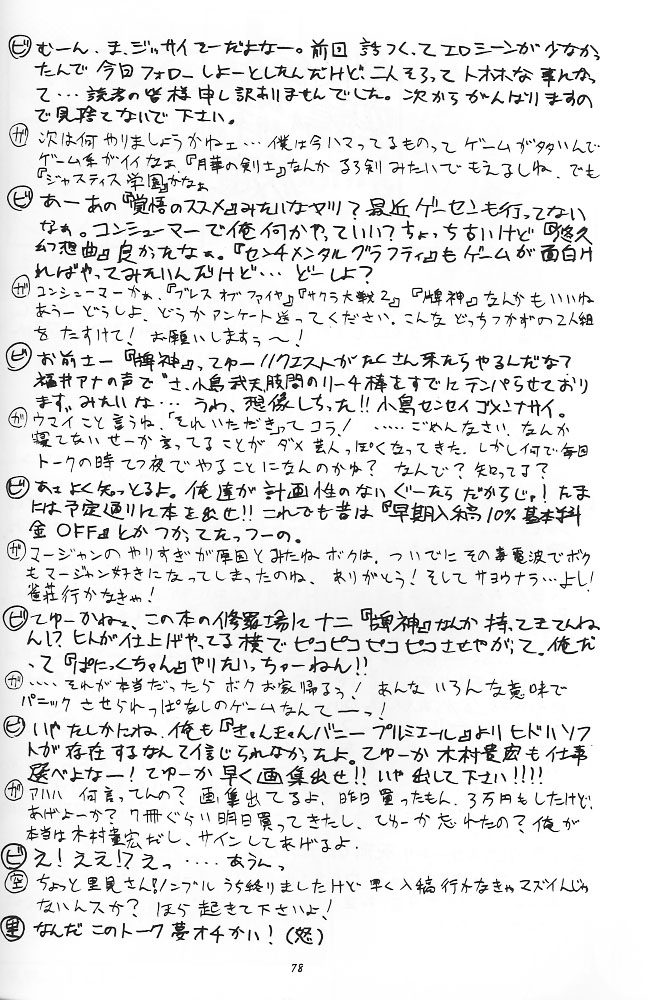 ビ むーん、ま、ジッサイてーだよなー。前回 話つくってエロシーンが少なかっ
たんで 今日フォローしよーとしたんだけど、二人そろって トホホな事んなっ
て…読者の皆様申し訳ありませんでした。次からがんばりますの
で見捨てないで下さい。
ガ 次は何やりましょうかねェ…僕は今ハマってるものって ゲームが多いんで
ゲーム系がイイなぁ、『月華の剣士』なんか るろ剣みたいで もえるしね、でも
『ジャスティス学園』かなぁ
ビ あーあの『覚悟のススメ』みたいなヤツ?最近ゲーセンも行ってない
なぁ。コンシューマーで俺何かやっていい?ちょっち古いけど『悠久
幻想曲』良かったなぁ。『センチメンタルグラフティ』もゲームが面白け
ればやってみたいんだけど…どーしよ?
ガ コンシューマーかぁ、『ブレス オブ ファイヤ』『サクラ大戦2』『牌神』なんかもいいね
あうー どうしよ、どうか アンケート送ってください。こんな どっちつかずの2人組
を たすけて!お願いしますぅ〜!
ビ お前さー『牌神』ってゆーリクエストがたくさん来たらやるんだな?
福井アナの声で"さ、小島武夫股間のリーチ棒をすでにテンパらせており
ます"みたいな…うわ、想像しちった!!小島センセイゴメンナサイ。
ガ ウマイこと言うね、「それいただき」ってコラ!……ごめんなさい、なんか
寝てないせーか言ってることが ダメ芸人っぽくなってきた、しかし何で毎回
トークの時 てつ夜でやることになんのかね?なんで?知ってる?
ビ あぁよく知っとるよ。俺達が計画性のないぐーたらだからじゃ!たま
には予定通りに本を出せ!!これでも昔は『早期入稿10%基本料
金OFF』とかつかってたっつーの。
ガ マージャンのやりすぎが原因とみたね ボクは、ついでに その毒電波でボク
もマージャン好きになってしまったのね、ありがとう!そしてサヨウナラ…よし!
雀荘行かなきゃ!
ビ てゆーかねぇ、この本の修羅場にナニ『牌神』なんか持ってきてんね
ん!?ヒトが仕上げやってる横でピコピコピコピコさせやがって。俺だ
って『ぱにっくちゃん』やりたいっちゃーねん!!
ガ ……それが本当だったら ボクお家帰るっ!あんな いろんな意味で
パニック させられっぱなしのゲームなんてーーっ!
ビ いやたしかにね、俺も『きゃんきゃんバニー プルミエール』よりヒドいソフ
トが存在するなんて信じられなかったよ。てゆーか木村貴宏も仕事
選べよなー!てゆーか早く画集出せ!!いや出して下さい!!!!
ガ アハハ 何言ってんの?画集出てるよ、昨日買ったもん、3万円もしたけど、
あげよーか?7冊ぐらい明日買ってきたし、てゆーか忘れたの?俺が
本当は木村貴宏だし、サインしてあげるよ、
ビ え!ええ!?えっ……あうんっ
空 ちょっと里見さん!ノンブルうち終りましたけど 早く入稿行かなきゃマズイんじゃ
ないんスか?ほら起きて下さいよ!
里 なんだ このトーク夢オチかい!(怒)
78